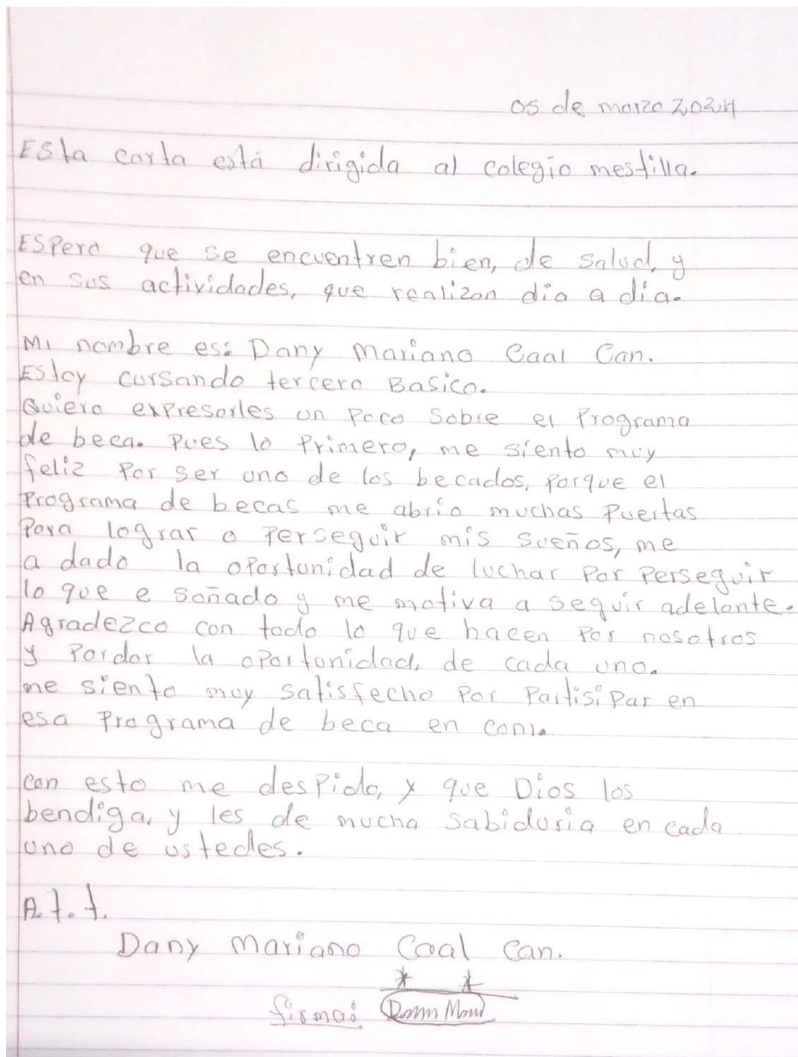 05 de marzo 2,024
Esta carta está dirigida al colegio mestilla.
Espero que se encuentren bien, de salud, y
en sus actividades, que realizan dia a día.
Mi nombre es: Dany Mariano Caal Can.
Estoy cursando tercero Basico.
Quiero expresarles un Poco Sobre el Programa
de beca. Pues lo Primero, me siento muy
feliz Por ser uno de los becados, Porque el
Programa de becas me abrio muchas Puertas
Para lograr o Perseguir mis sueños, me
a dado la oPortunidad de luchar Por Perseguir
lo que e soñado y me motiva a seguir adelante.
Agradezco con todo lo que hacen Por nosotros
y Pordar la oPortunidad, de cada uno.
me siento muy satisfecho Por PartisiPar en
esa Programa de beca en coni.
Con esto me desPido, y que Dios los
bendiga, y les de mucha Sabiduria en cada
uno de ustedes.
A.t.t.
Dany Mariano Caal Can.
firma: